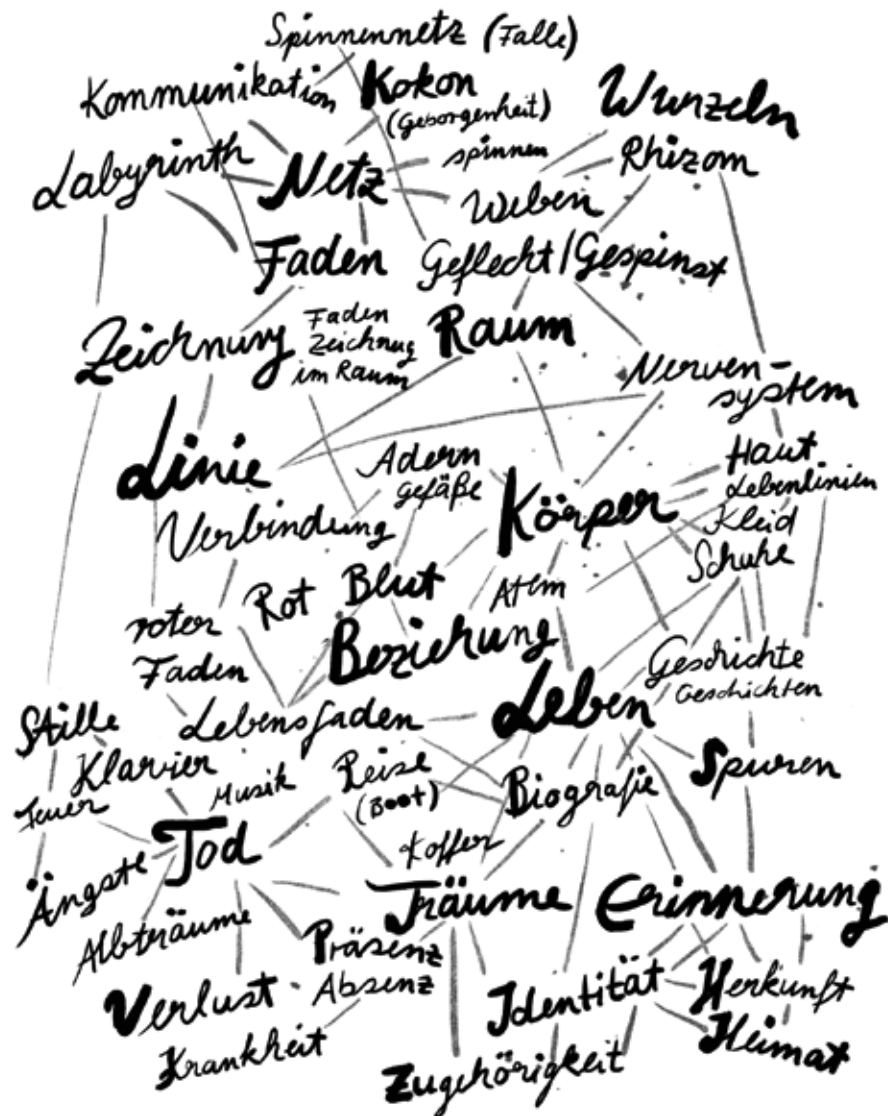 Spinnennetz (Falle)
Kommunikation
Kokon
(Geborgenheit)
Wurzeln
Labyrinth
Netz
spinnen
Rhizom
Weben
Faden
Geflecht/Gespinst
Zeichnung
Faden
Zeichnug
im Raum
Raum
Nerven-
system
Linie
Adern
gefäße
Körper
Haut
Lebenlinien
Kleid
Schuhe
Verbindung
Rot
Blut
Atem
roter
Faden
Beziehung
Geschichte
Geschichten
Lebensfaden
Leben
Stille
Klavier
Musik
Reise
(Boot)
Biografie
Spuren
Feuer
Tod
Koffer
Ängste
Albträume
Träume
Erinnerung
Präsenz
Absenz
Verlust
Identität
Herkunft
Heimat
Krankheit
Zugehörigkeit